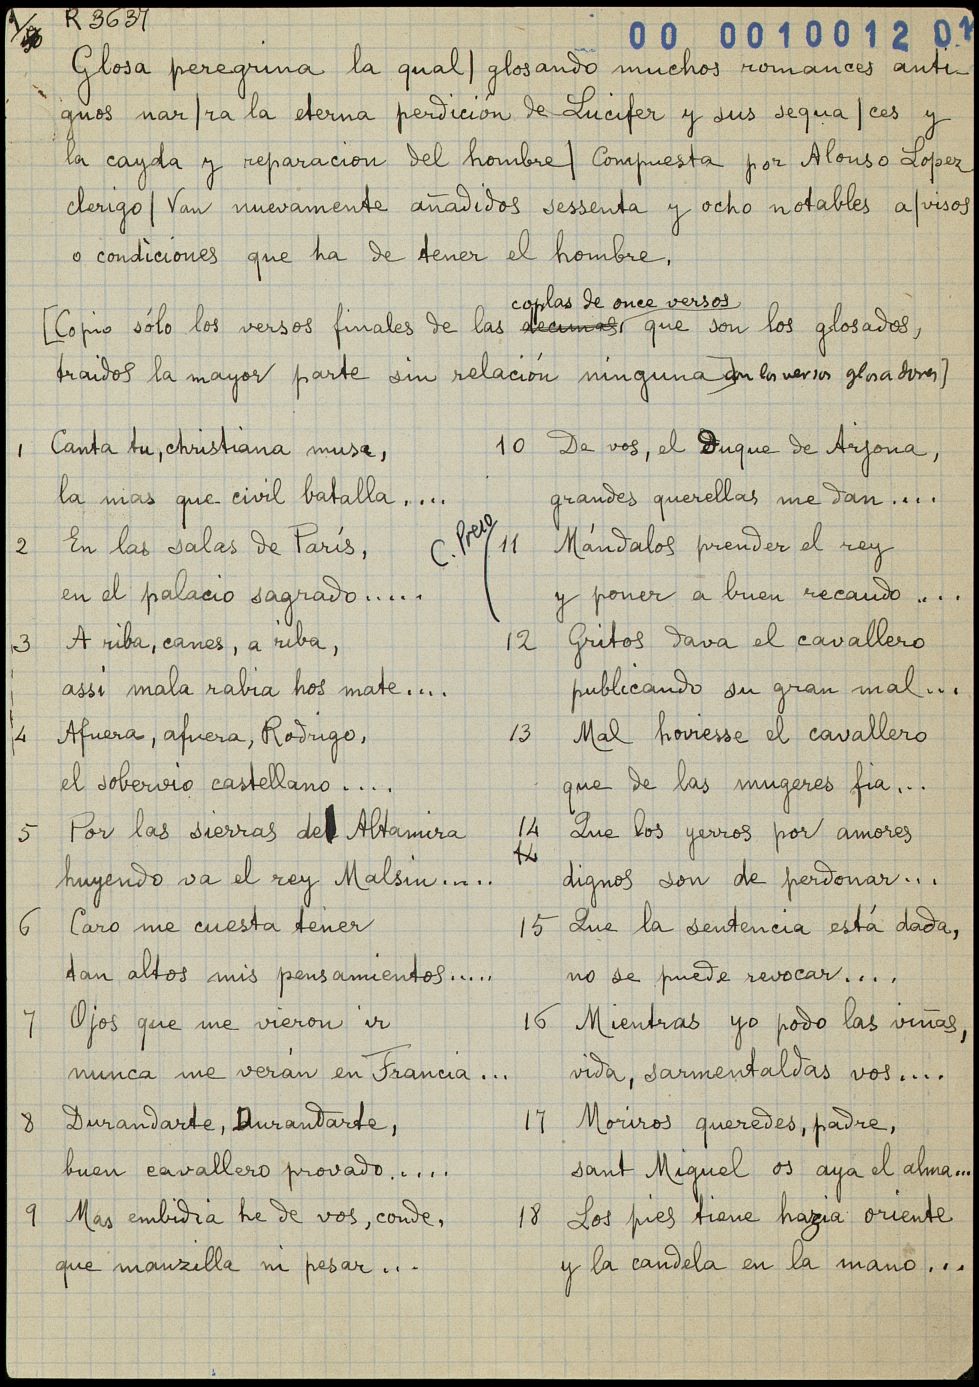 1/ R 3637
00 0010012 01
Glosa peregrina la qual| glosando muchos romances anti-
guos nar|ra la eterna perdición de Lucifer y sus sequa|ces y
la cayda y reparacion del hombre| Compuesta por Alonso Lopez
clerigo| Van nuevamente añadidos sessenta y ocho notables a|visos
o condiciones que ha de tener el hombre.
coplas de once versos
[Copio sólo los versos finales de las decimas, que son los glosados,
traidos la mayor parte sin relación ninguna con los versos glosadores]
1 Canta tu, christiana musa,
la mas que civil batalla....
2 En las salas de París,
en el palacio sagrado.....
3 A riba, canes, a riba,
assi mala rabia hos mate....
4 Afuera, afuera, Rodrigo,
el sobervio castellano....
5 Por las sierras del Altamira
huyendo va el rey Malsin.....
6 Caro me cuesta tener
tan altos mis pensamientos.....
7 Ojos que me vieron ir
nunca me verán en Francia...
8 Durandarte, Durandarte,
buen cavallero provado.....
9 Mas embidia he de vos, conde,
que manzilla ni pesar...
10 De vos, el Duque de Arjona,
grandes querellas me dan....
C. Preso
11 Mándalos prender el rey
y poner a buen recaudo....
12 Gritos dava el cavallero
publicando su gran mal...
13 Mal hoviesse el cavallero
que de las mugeres fia...
14 Que los yerros por amores
14
dignos son de perdonar...
15 Que la sentencia está dada,
no se puede revocar....
16 Mientras yo podo las viñas,
vida, sarmentaldas vos....
17 Moriros queredes, padre,
sant Miguel os aya el alma...
18 Los pies tiene hazia oriente
y la candela en la mano...